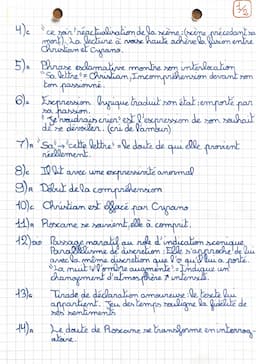 4)c "ce soir" réactualisation de la scène, (scène précédant sa
mort). La lecture à voix haute achève la fusion entre
Christian et Cyrano.
5)R Phrase exclamative montre son interlocation
"Sa lettre" = Christian, Incompréhension devant son
ton passionné.
6)c Expression lyrique traduit son état : emporté par
sa passion.
"Je voudrais crier" est l'expression de son souhait
de se dévoiler. (cri de l'ambur)
7)R "Sa" → "cette lettre" = le doute de qui elle provient
réellement.
8)c Il lit avec une expressivité anormal
9)R Début de la compréhension
10)c Christian est effacé par Cyrano
11)R Roxane se souvient, elle à comprit.
12) Passage narratif au rôle d'indication scénique
Parallélisme de discrétion. Elle s'approche de lui
avec la même discrétion que l'o qu'il lui a porté.
"La nuit" "l'ombre augmente" = Indique un
changement d'atmosphère + intensité.
13)c Tirade de déclaration amoureuse : le texte lui
appartient. Jeu des temps souligne la fidélité de
ses sentiments
14)R Le doute de Roxane se transforme en interrog-
atoire.